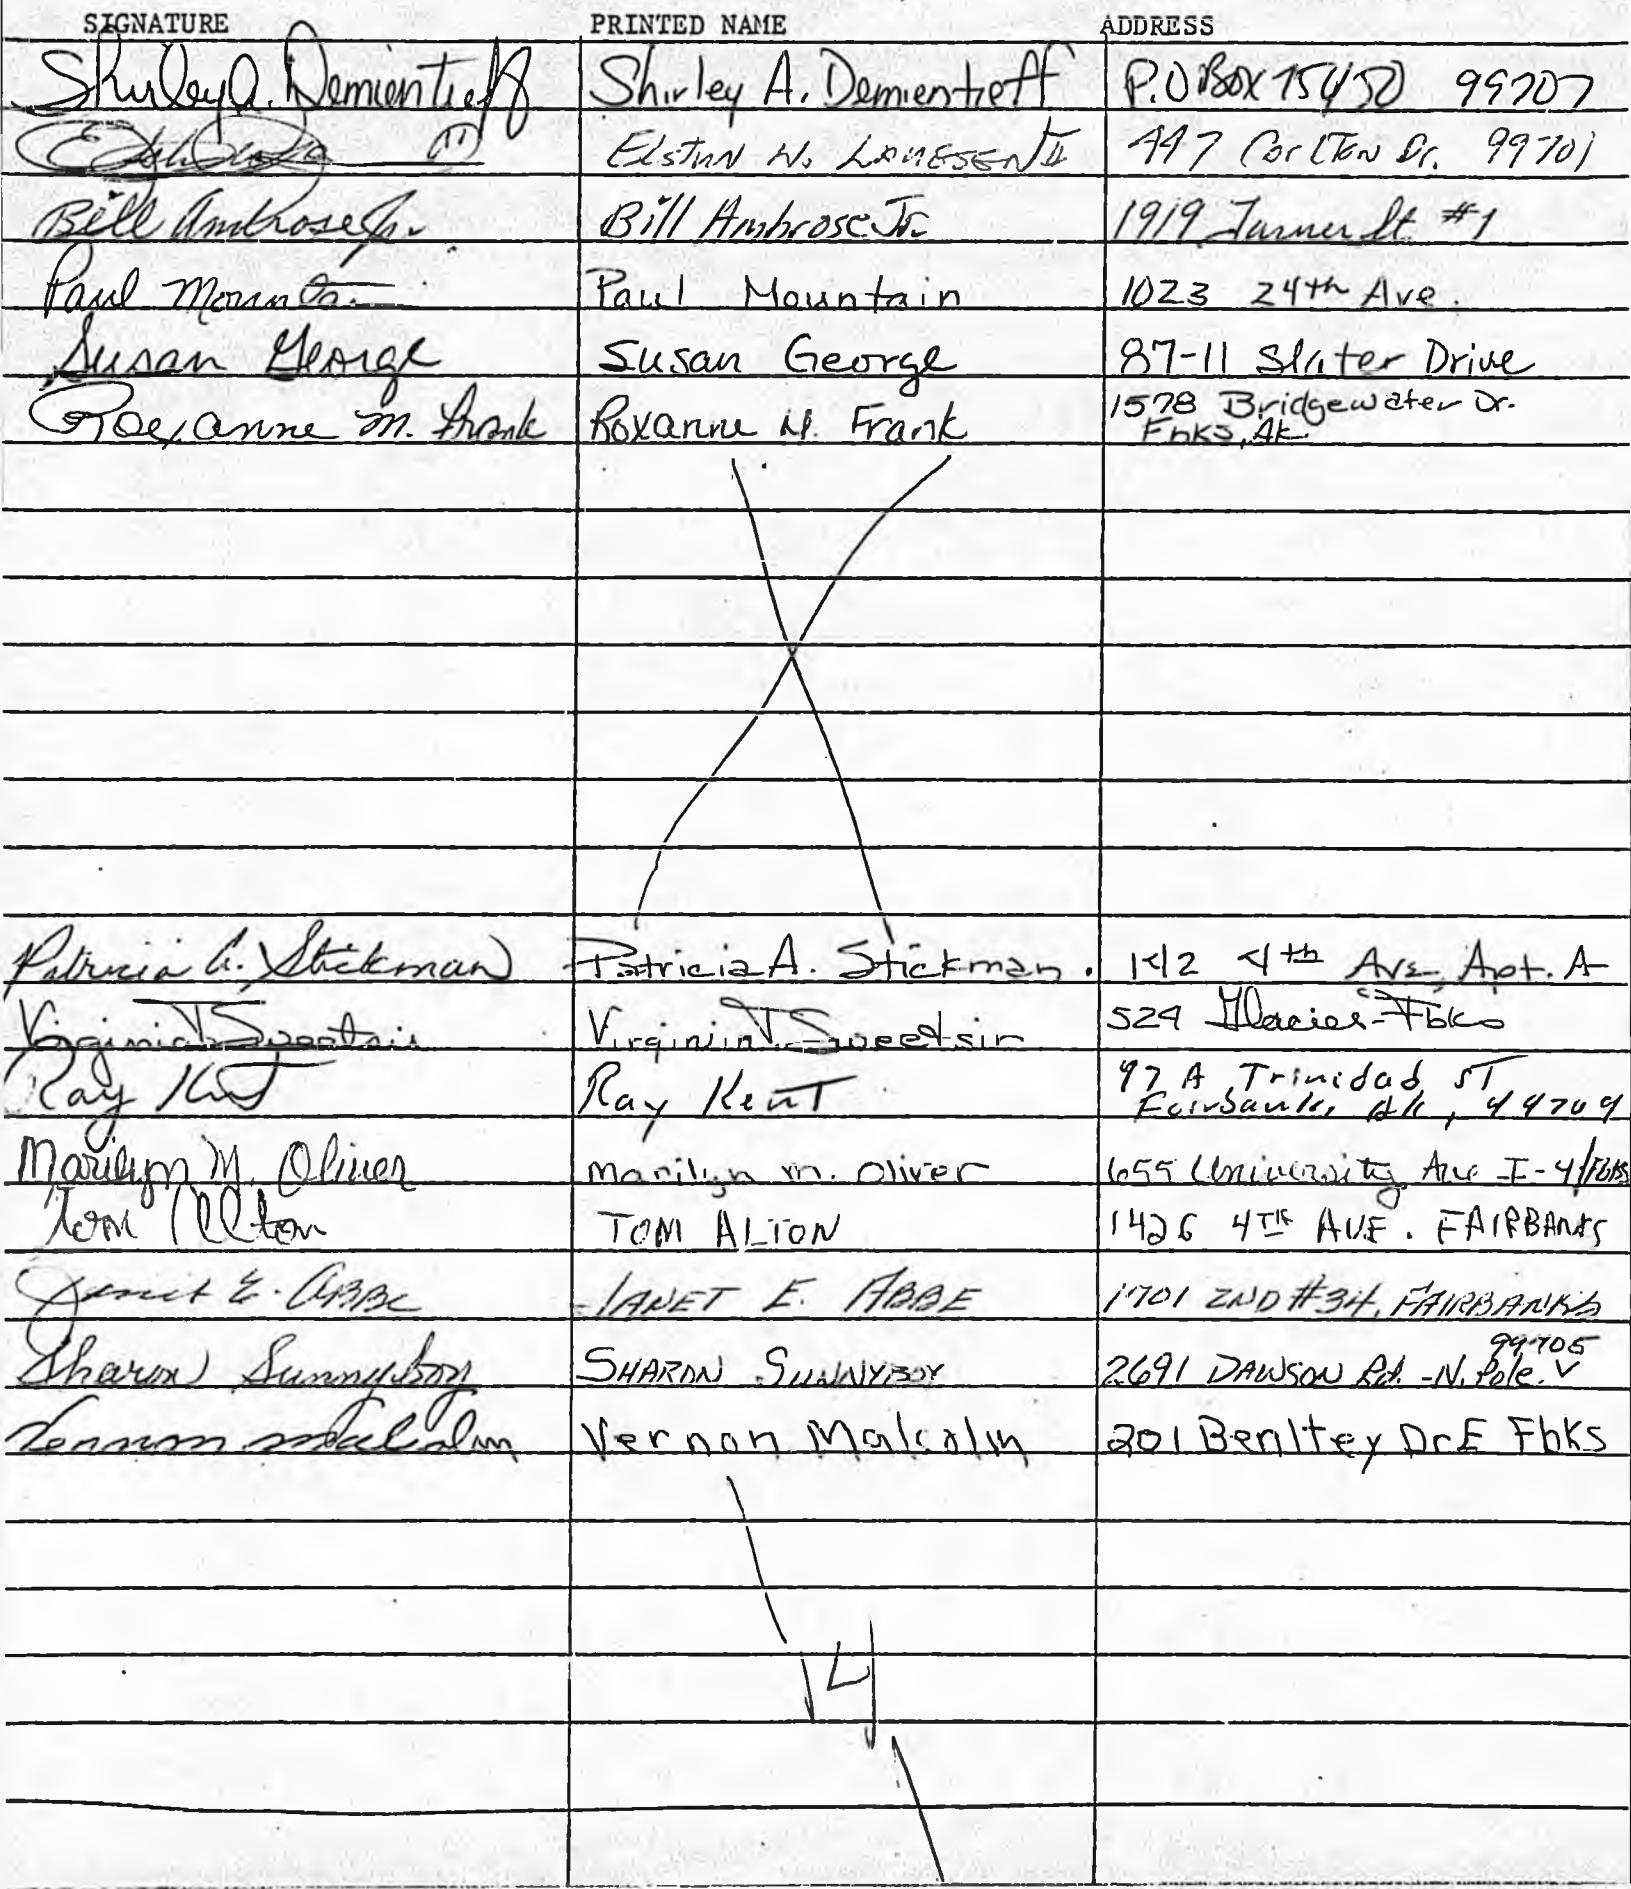 SIGNATURE PRINTED NAME ADDRESS
Shirley A. Demientieff Shirley A. Demientieff P.O Box 75450 99707
W. II 447 Carlton Dr. 99701
Bill Ambrose Jr. Bill Ambrose Jr. 1919 Turner St. #1
Paul Mountain Paul Mountain 1023 24th Ave.
Susan George Susan George 87-11 Slater Drive
Roxanne M. Frank Roxanne M. Frank 1578 Bridgewater Dr.
Fbks, AK
Patricia A. Stickman Patricia A. Stickman. 1412 4th Ave, Apt. A
Virginia T Sweetsir Virginia T Sweetsir 529 Glacier-Fbks
Ray Kent Ray Kent 97 A Trinidad ST
Fairbanks, AK, 99709
Marilyn M. Oliver Marilyn m. Oliver 655 University Ave I-4/Fbks
Tom Alton TOM ALTON 1426 4TH AVE. FAIRBANKS
Janet E. ABBE JANET E. ABBE 1701 2ND #34, FAIRBANKS
99705
Sharon Sunnyboy SHARON SUNNYBOY 2691 DAWSON Rd. -N. Pole
Vernon Malcolm Vernon Malcolm 201 Benltey Dr E Fbks
14